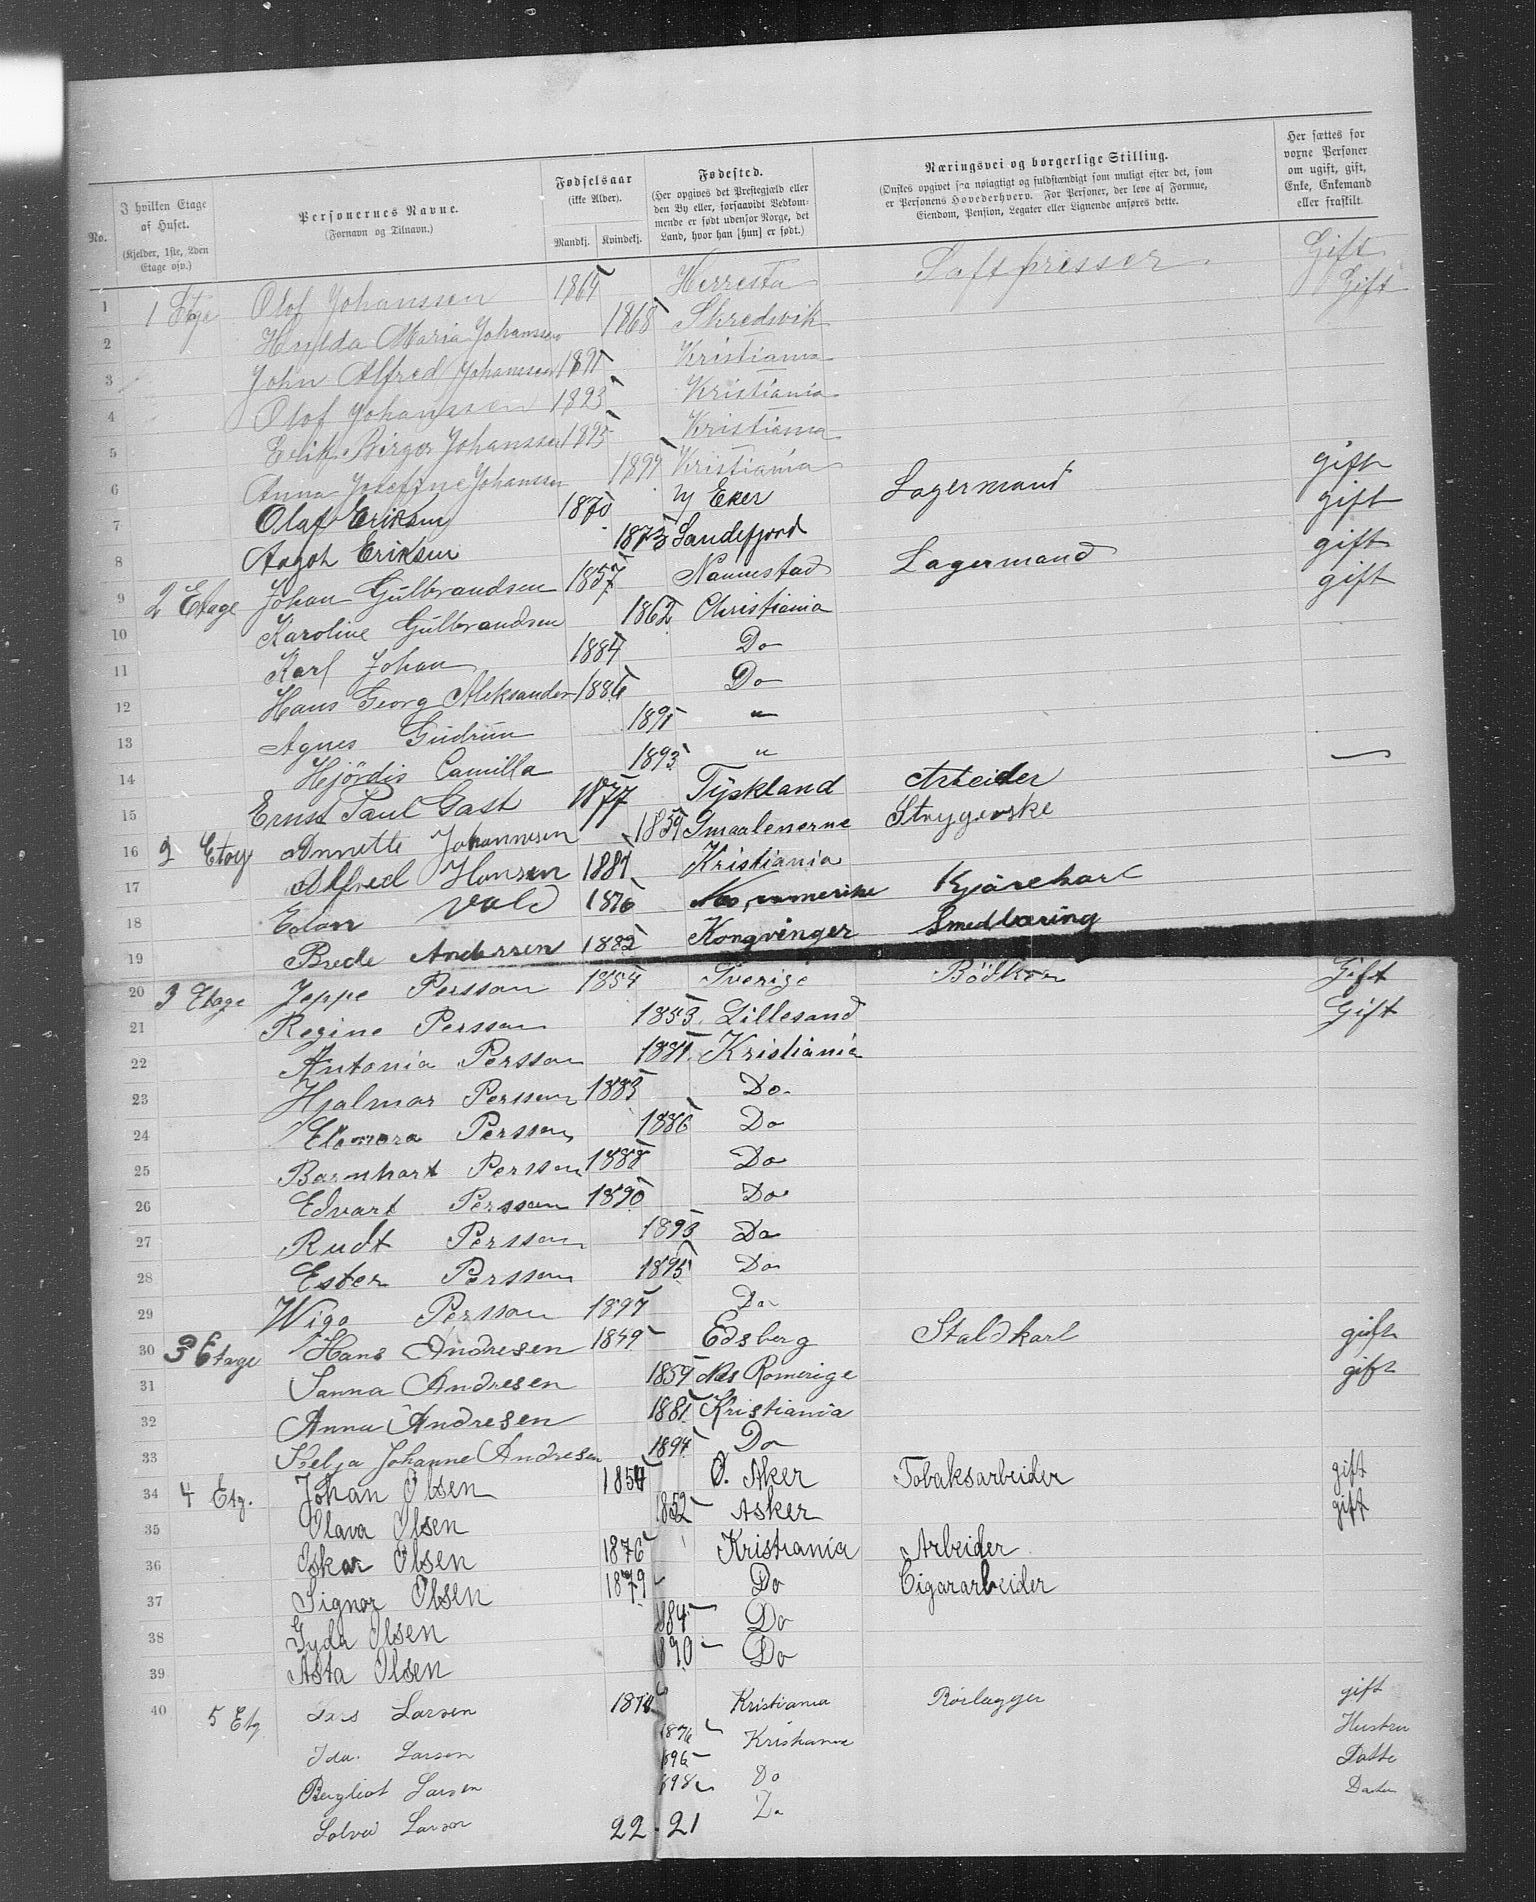 No.
I hvilken Etage af Huset.
(Kjelder, 1ste, 2den Etage osv.)
Personernes Navne.
(Fornavn og Tilnavn.)
Fødselsaar
(ikke Alder).
Mandkj. Kvindekj.
Fødested.
(Her opgives det Præstegjæld eller
den By eller, forsaavidt Vedkom-
mende er født udenfor Norge, det
Land, hvor han [hun] er født.)
Næringsvei og borgerlige Stilling.
(Ønskes opgivet saa nøiagtigt og fuldstændigt som muligt efter det, som
er Personens Hovederhverv. For Personer, der leve af Formue,
Eiendom, Pension, Legater eller Lignende anføres dette.
Her sættes for
voxne Personer
om ugift, gift,
Enke, Enkemand
eller fraskilt.
1 1 Etage Olof Johanssen 1864 Herresta Saftpresser Gift
2 Hulda Maria Johanssen 1868 Skredsvik Gift
3 John Alfred Johanssen 1891 Kristiania
4 Olof Johanssen 1893 Kristiania
5 Erik Birger Johanssen 1895 Kristiania
6 Anna Josefine Johanssen 1899 Kristiania
7 Olaf Eriksen 1870 Eker Lagermand gift
8 Aagot Eriksen 1873 Sandefjord gift
9 2 Etage Johan Gulbrandsen 1857 Nannestad Lagermand gift
10 Karoline Gulbrandsen 1862 Christiania gift
11 Karl Johan 1884 Do
12 Hans Georg Aleksander 1886 Do
13 Agnes Gudrun 1891 "
14 Hjördis Camilla 1893 "
15 Ernst Paul Gast 1877 Tÿskland Arbeider —
16 2 Etage Annette Johannesen 1859 Smaalenerne Strygerske
17 Alfred Hansen 1881 Kristiania
18 Edon Vold 1876 Kjörekarl
19 Brede Andersen 1882 Kongvinger Smedlæring
20 3 Etage Jeppe Persson 1854 Sverige Bödker Gift
21 Regine Persson 1853 Lillesand Gift
22 Antonia Persson 1881 Kristiania
23 Hjalmar Persson 1883 Do.
24 Elenora Persson 1886 Do
25 Barnhart Persson 1888 Do
26 Edvart Persson 1890 Do
27 Rudt Persson 1893 Do
28 Ester Persson 1895 Do
29 Wigo Persson 1897 Do
30 3 Etage Hans Andresen 1859 Edsberg Staldkarl gift
31 Sanna Andresen 1859 Nes Romerige gift
32 Anna Andresen 1881 Kristiania
33 Johanne Andresen 1894 Do
34 4 Etg. Johan Olsen 1854 Ö. Aker Tobaksarbeider gift
35 Olava Olsen 1852 Asker gift
36 Oskar Olsen 1876 Kristiania Arbeider
37 Signor Olsen 1879 Do Cigararbeider
38 Gyda Olsen 1884 Do
39 Asta Olsen 1890 Do
40 5 Etg Lars Larsen 1874 Kristiania Rörlægger gift
Ida Larsen 1876 Kristiania Hustru
Bergliot Larsen 1896 Do Datte
Solvei Larsen 1898 Do Datter
22 . 21